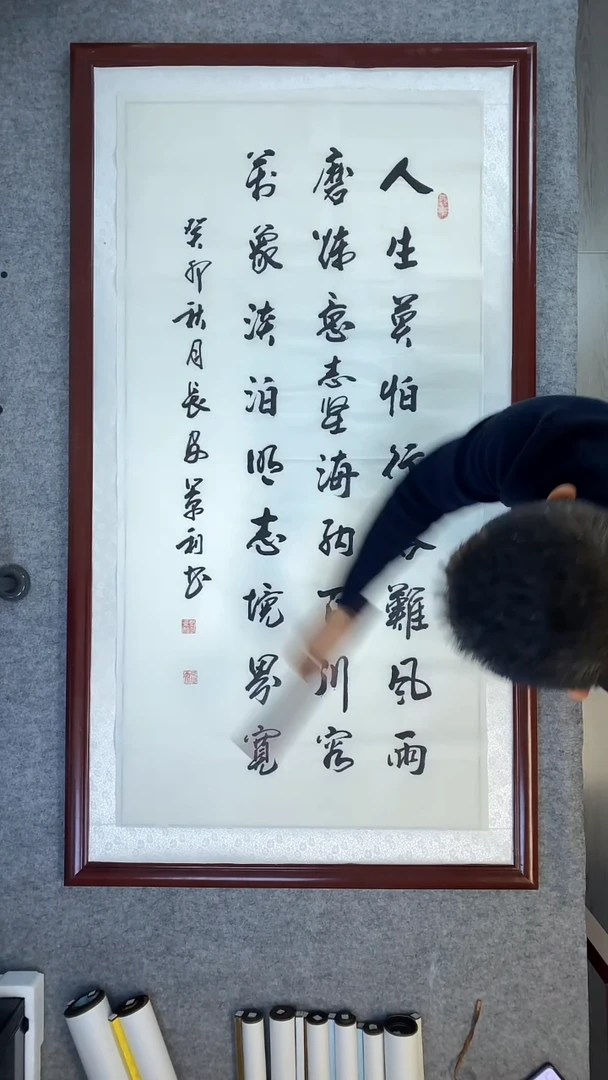 人生莫怕行難風雨
磨炼意志坚海纳百川容
萬象淡泊明志境界寬
癸卯秋月長安利书